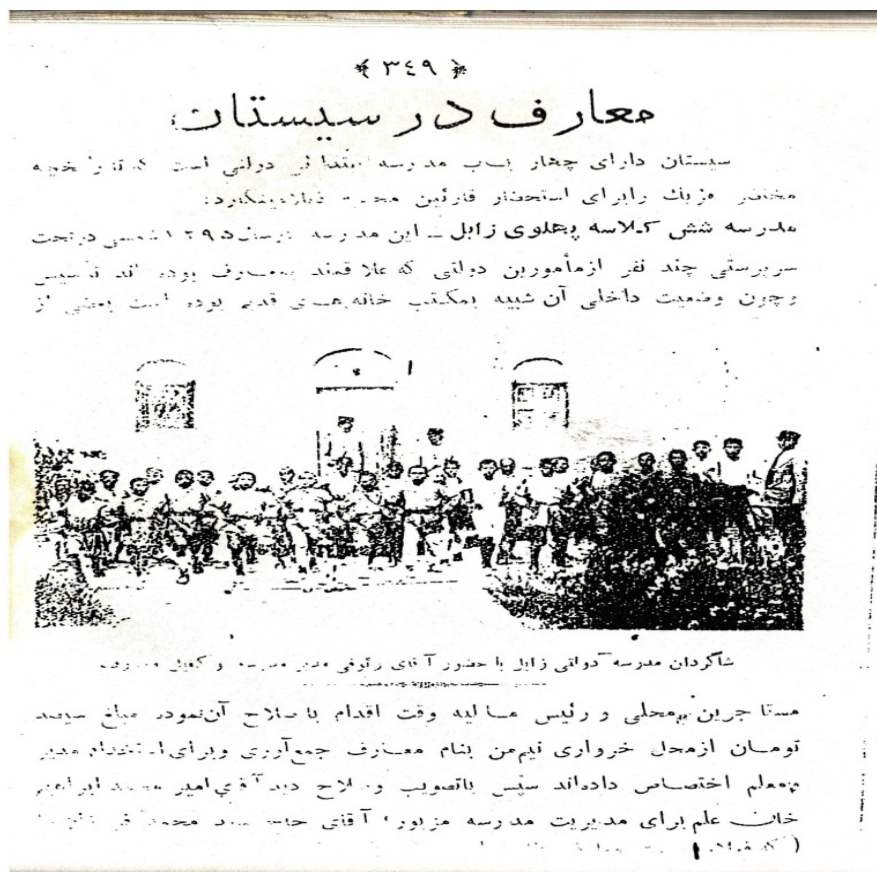 ﴿ ٣٤٩ ﴾
معارف در سیستان
سیستان دارای چهار باب مدرسه ابتدائی دولتی است که
مختصر هر یك را برای استحضار قارئین
مدرسه شش کلاسه پهلوی زابل ـ این مدرسه در سال ۱۲۹۵ شمسی در تحت
سرپرستی چند نفر از مأمورین دولتی که علاقمند بمعارف بوده اند تأسیس
و چون وضعیت داخلی آن شبیه بمکتب خانه های قدیم بوده است بعضی از
شاگردان مدرسه دولتی زابل با حضور آقای رئوفی مدیر مدرسه و کفیل معارف
مستاجرین محلی و رئیس مالیه وقت اقدام باصلاح آن نموده مبلغ سیصد
تومان از محل خرواری نیم من بنام معارف جمع آوری و برای استخدام مدیر
و معلم اختصاص داده اند سپس با تصویب و صلاح دید آقای امیر محمد ابراهیم
خان علم برای مدیریت مدرسه مزبور، آقای حاج سید محمد